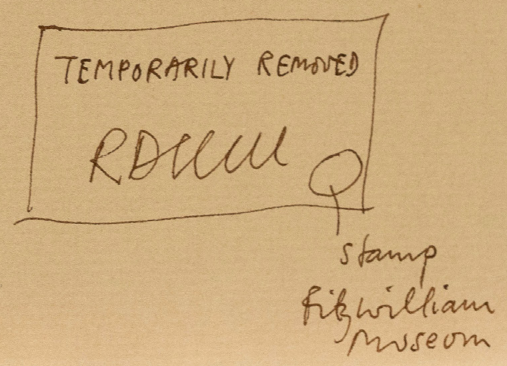 TEMPORARILY REMOVED
stamp
Fitzwilliam
Museum